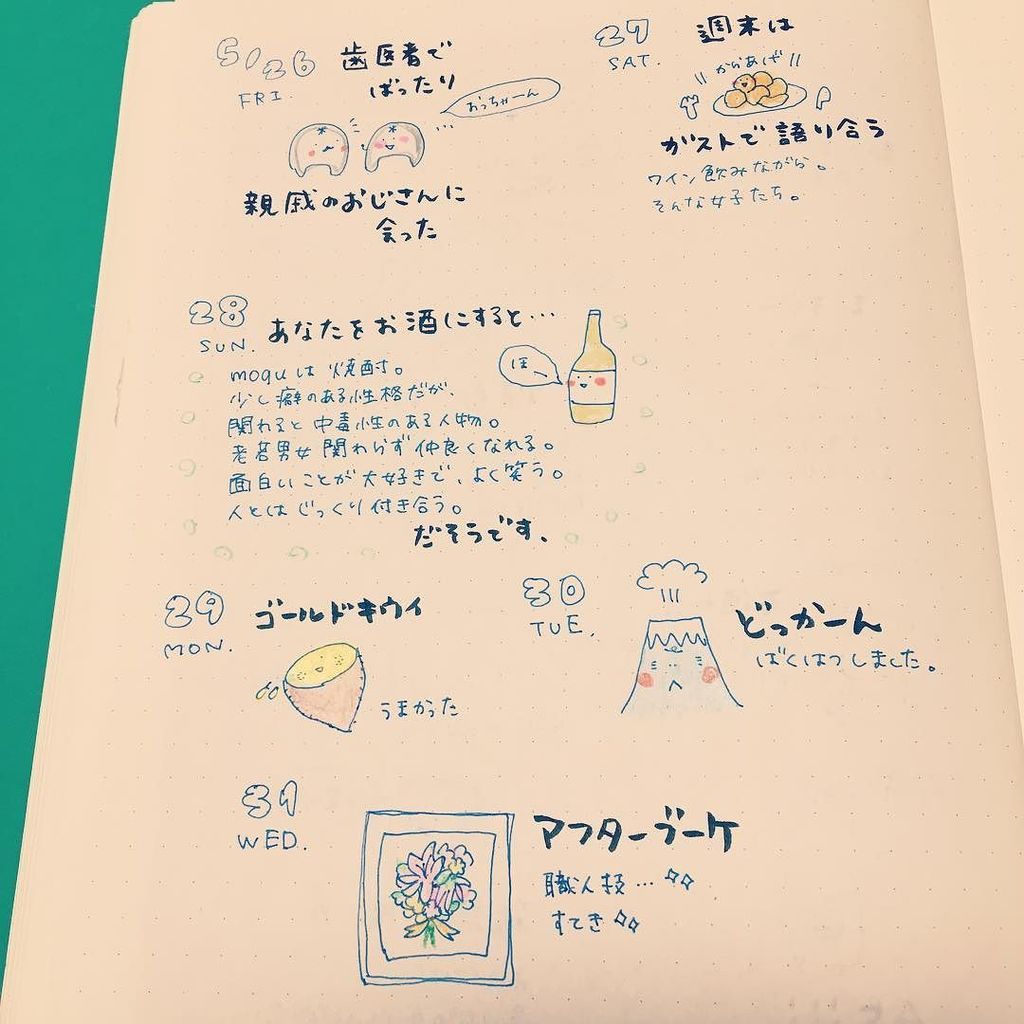 5/26
FRI.
歯医者で
ばったり
おっちゃーん
親戚のおじさんに
会った
27
SAT.
週末は
からあげ
ガストで語り合う
ワイン飲みながら。
そんな女子たち。
28
SUN.
あなたをお酒にすると…
moguは焼酎。
少し癖のある性格だが、
関わると中毒性のある人物。
老若男女関わらず仲良くなれる。
面白いことが大好きで、よく笑う。
人とはじっくり付き合う。
だそうです、
ほー
29
MON.
ゴールドキウイ
うまかった
30
TUE.
どっかーん
ばくはつしました。
31
WED.
アフターブーケ
職人技…
すてき